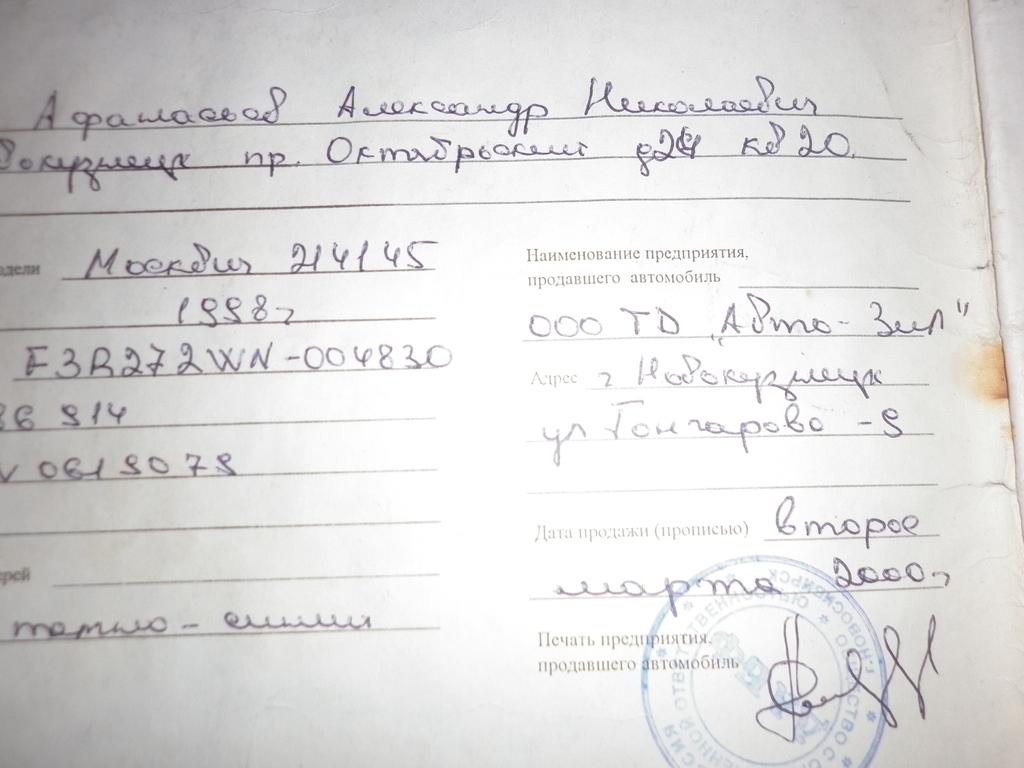 Афанасьев Александр Николаевич
вокузнецк пр. Октябрьский д24 кв 20.
одели Москвич 214145
1998г
F3R272WN-004830
36 914
V 0619079
ерей
темно-синий
Наименование предприятия,
продавшего автомобиль
ООО ТД „Авто-Зил"
Адрес г Новокузнецк
ул Гончарова -9
Дата продажи (прописью) второе
марта 2000г
Печать предприятия,
продавшего автомобиль